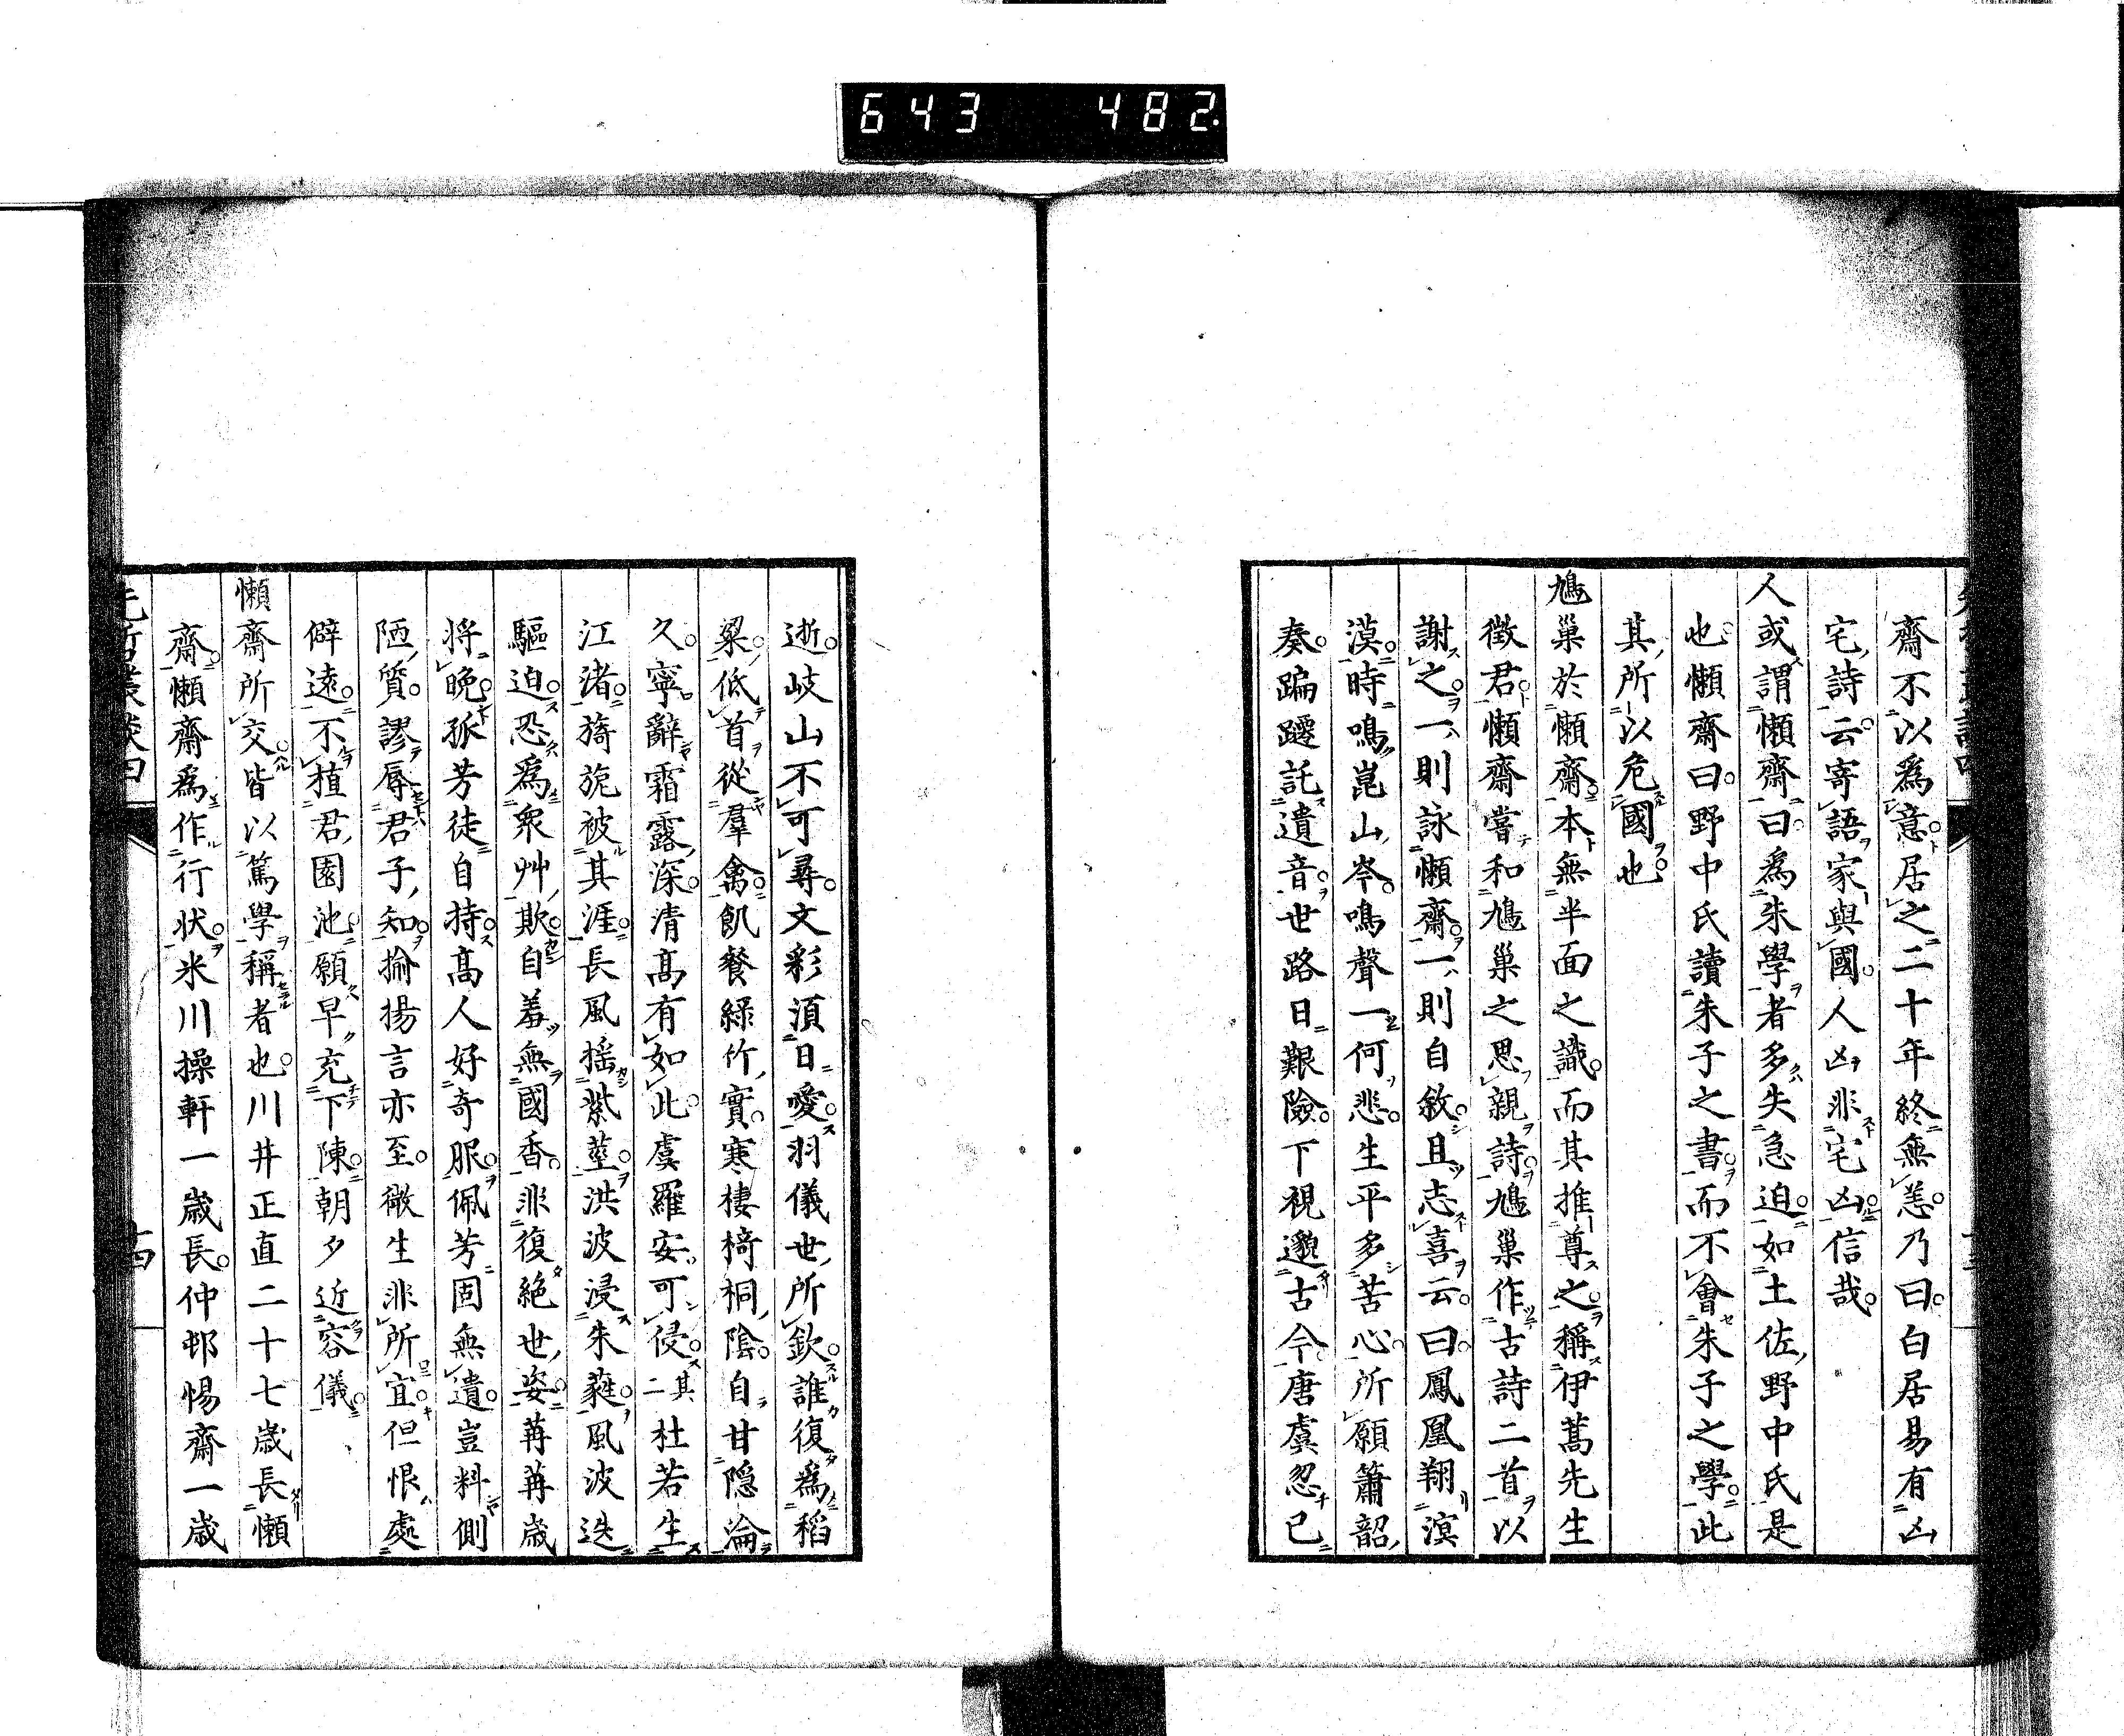 643 482.
齋不以爲意居之二十年終無恙乃曰白居易有凶
宅詩云寄語家與國人凶非宅凶信哉
人或謂懶齋曰爲朱學者多失急迫如土佐野中氏是
也懶齋曰野中氏讀朱子之書而不會朱子之學此
其所以危國也
鳩巢於懶齋本無半面之識而其推尊之稱伊蒿先生
徵君懶齋嘗和鳩巢之思親詩鳩巢作古詩二首以
謝之一則詠懶齋一則自敘且志喜云曰鳳凰翔溟
漠時鳴崑山岑鳴聲一何悲生平多苦心所願簫韶
奏蹁躚託遺音世路日艱險下視邈古今唐虞忽已
逝岐山不可尋文彩須日愛羽儀世所欽誰復爲稻
粱低首從羣禽飢餐綠竹實寒棲梧桐陰自甘隱淪
久寧辭霜露深清高有如此虞羅安可侵其二杜若生
江渚旖旎被其涯長風搖紫莖洪波浸朱蕤風波迭
驅迫恐爲衆艸欺自羞無國香非復絕世姿苒苒歲
將晚孤芳徒自持高人好奇服佩芳固無遺豈料側
陋質謬辱君子知揄揚言亦至微生非所宜但恨處
僻遠不植君園池願早充下陳朝夕近容儀
懶齋所交皆以篤學稱者也川井正直二十七歲長懶
齋懶齋爲作行狀米川操軒一歲長仲邨惕齋一歲
先哲叢談四
十四